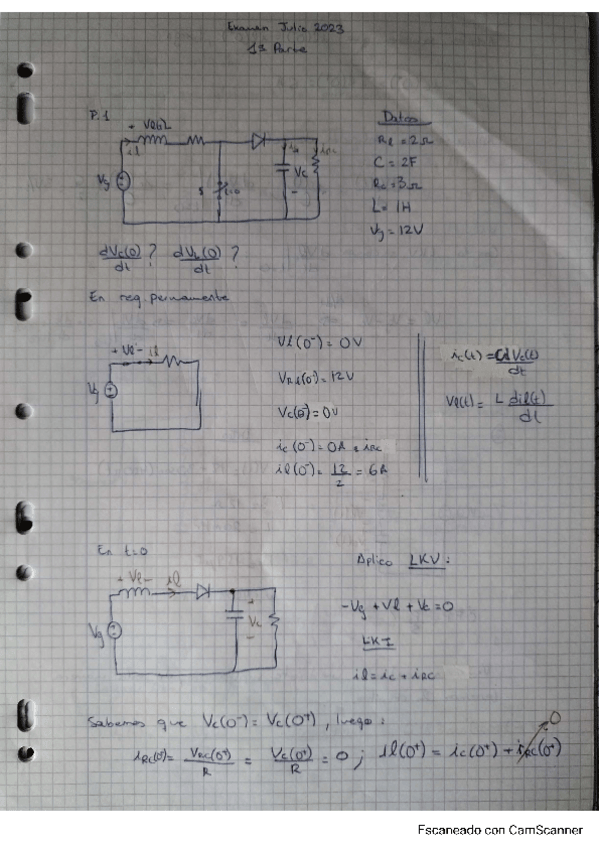 Examen Julio 2023
1ª Parte
P.1
+ Vl(t)
il
Datos
Rl = 2Ω
C = 2F
Rc = 3Ω
L = 1H
Vg = 12V
Vg
s
t=0
ic
iRc
Vc
-
dVc(0)/dt ? dVl(0)/dt ?
En reg. permanente
+ Vl - il
Vg
Vl(0⁻) = 0V
VRl(0⁻) = 12V
Vc(0⁻) = 0V
ic(0⁻) = 0A = iRc
il(0⁻) = 12/2 = 6A
ic(t) = C dVc(t)/dt
Vl(t) = L dil(t)/dt
En t=0
+ Vl - il
Vg
+
Vc
-
Aplico LKV :
-Vg + Vl + Vc = 0
LKI
il = ic + iRc
Sabemos que Vc(0⁻) = Vc(0⁺), luego :
iRc(0⁺) = VRc(0⁺)/R = Vc(0⁺)/R = 0 ; il(0⁺) = ic(0⁺) + iRc(0⁺)
0
Escaneado con CamScanner